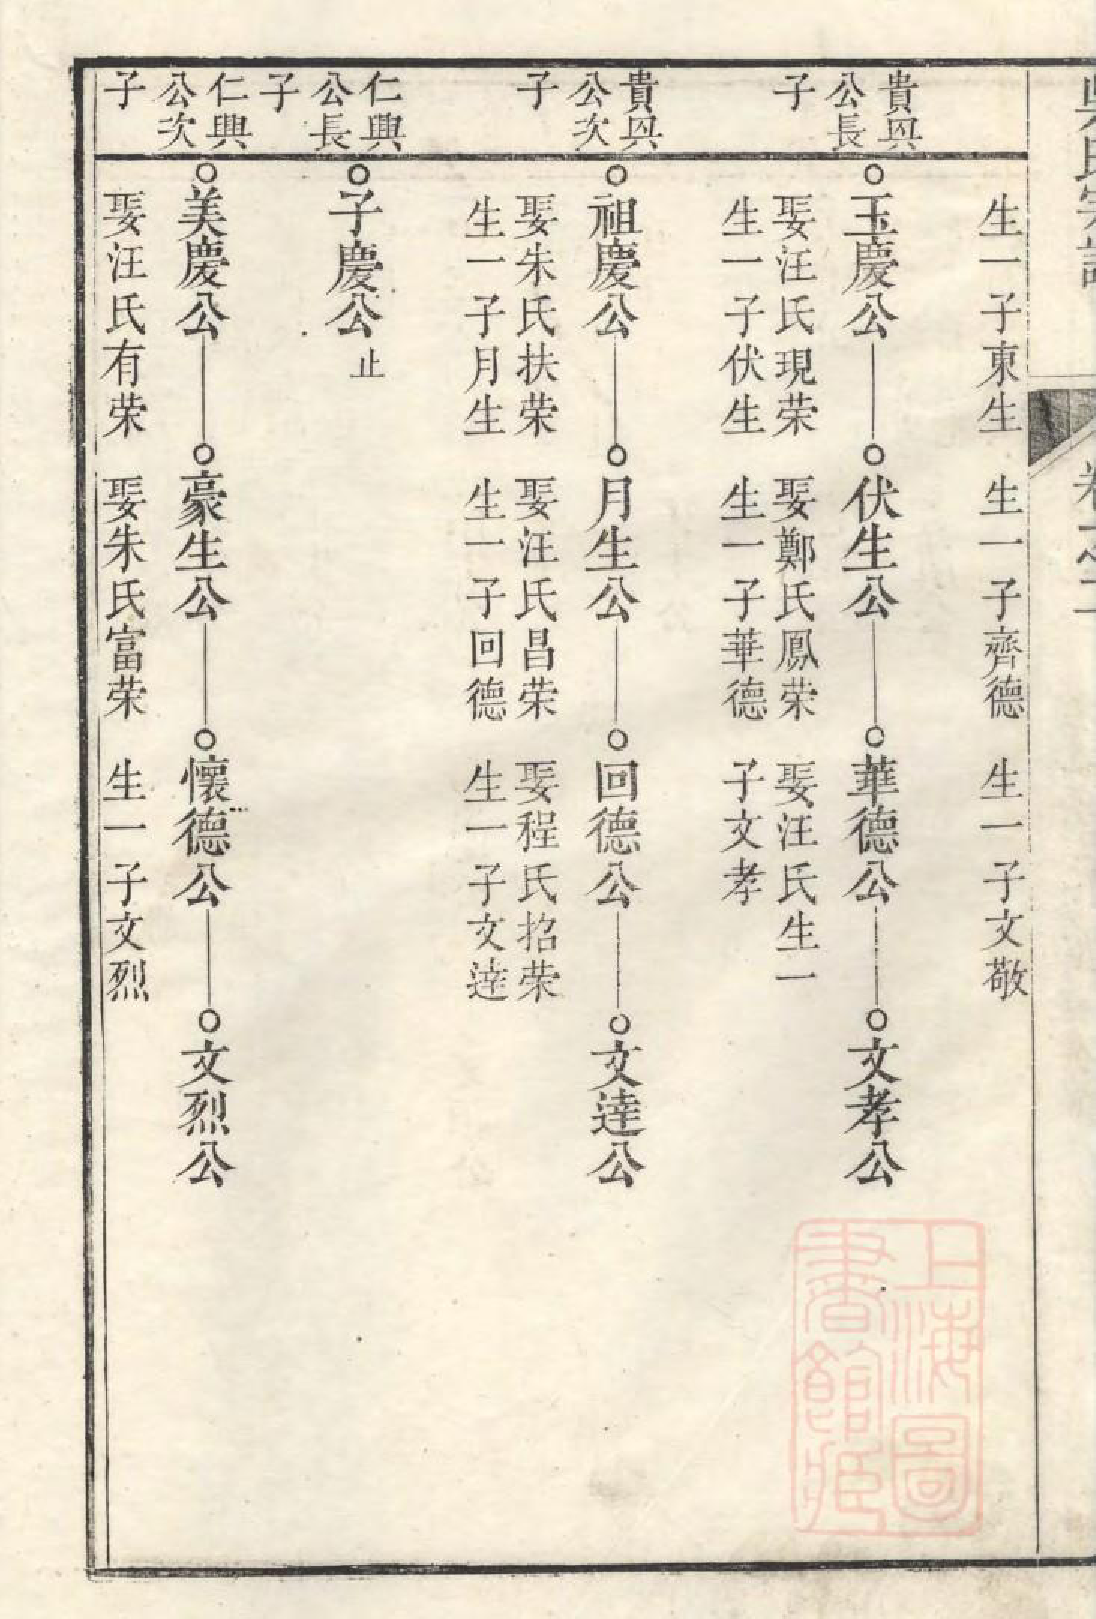 吳氏宗譜
卷之二
生一子東生
生一子齊德
生一子文敬
貴興
公長
子
玉慶公
伏生公
華德公
文孝公
娶汪氏現荣
娶鄭氏鳳荣
娶汪氏生一
生一子伏生
生一子華德
子文孝
貴興
公次
子
祖慶公
月生公
回德公
文逹公
娶朱氏扶荣
娶汪氏昌荣
娶程氏招荣
生一子月生
生一子回德
生一子文逹
仁興
公長
子
子慶公
止
仁興
公次
子
美慶公
豪生公
懷德公
文烈公
娶汪氏有荣
娶朱氏富荣
生一子文烈
上海圖
書館藏